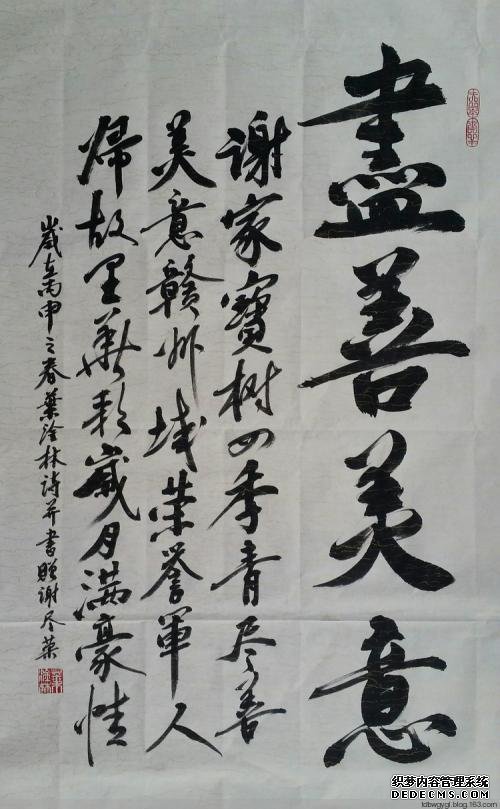 盡善美意
谢家寶树四季青尽善
美意赣州城荣誉軍人
帰故里歲月满豪情
歲在丙申之春葉淦林詩并書贈谢尽葉
织梦内容管理系统
DEDECMS.COM
tdbwgyql.blog.163.com